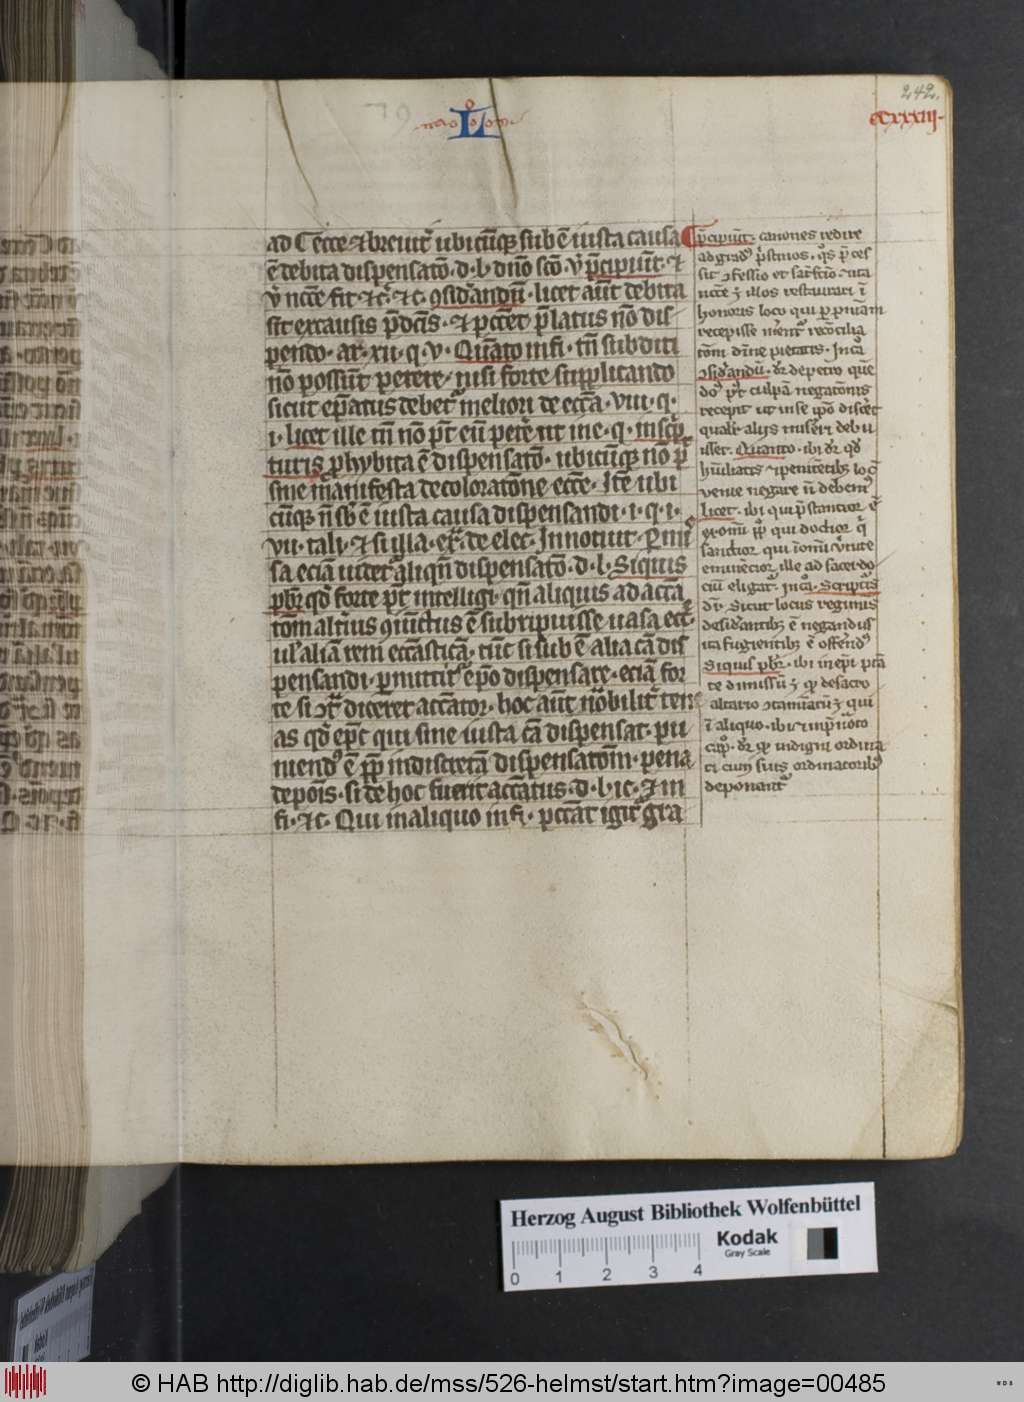 242.
L
ccxxxiij
ad c̄ ecc̄e ⁊ breuit̄ ubicūq; sub ē iusta causa
ē debita dispensatō · d · l · dn̄o sc̄o · ꝟ p̄cipiūt̄ · ⁊
ꝟ ncc̄e fit · ⁊c̄ · ⁊c · ꝯsid̄andū · licet aūt debita
sit ex causis p̄dc̄is · ⁊ peccet p̄latus nō dis
pensando · ar̄ · xii · q · v · Quāto in fi · tn̄ subditi
nō possūt petere · nisi forte supplicando
sicut ep̄atus debet̄ meliori de ecc̄a · viii · q ·
i · licet ille tn̄ nō pōt eū petere ut in e · q · in sc̄p
turis p̄hybita ē dispensatō · ubicūq; nō pōt
sine manifesta decoloratōne ecc̄e · Itē ubi
cūq; n̄ sb̄ ē iusta causa dispensandi · i · q · i ·
vii · tali · ⁊ si illa · ex̄ · de elec · Innotuit · p̄ mi
sa eciā uidet̄ aliqn̄ dispensatō · d · l · Siquis
pb̄r qd̄ forte pōt intelligi · qn̄ aliquis ad acc̄a
tōm alterius ꝯuictus ē subripuisse uasa ecc̄e
ul̓ aliā rem ecc̄asticā · tūc si sub ē alia cā dis
pensandi · p̄mittit̄ ep̄o dispensare · eciā for
te si ꝯt̄ diceret acc̄ator · hoc aūt no̓bilit̄ ten
as qd̄ ep̄c qui sine iusta cā dispensat · pu
niend̓ ē ꝓp̄ indiscretā dispensatōm · pena
depōis · si de hoc fuerit acc̄atus · d · l · ic · ⁊ in
fi · ⁊c · Qui in aliquo in fi · peccāt igit̄ gra
p̄cipiūt̄ · canones redire
ad grad̓ p̄stinos · q̓s p̄ces
sit ꝯfessio et sat̄fc̄io ⁊ ita
ncc̄e ē illos restaurari ī
honoris loco qui p̄ p̄niam
recepisse mēent̄ recōcilia
tōm diuine pietatis · In cā
ꝯsid̄andū · d̄r de petro quē
do̓ p̓t culpā negatōnis
recepit ut in se ip̄o disc̄et
qualit̄ alijs miser̄i debu
isset · Quanto · ibi d̄r qd̄
hūilitatis ⁊ ipenitētib; loc̓
venie negare n̄ debent̄
licet · ibi qui p̄stantior ē
ex om̄i pp̄lo qui doctior q̄i
sanctior qui ī om̄i v̄tute
eminēcior ille ad sacerdo
ciū eligat̄ · In cā · Scriptis
d̄r · Sicut locus regiminis
desid̄antib; ē negandus
ita fugientib; ē offerēd̓
Siquis pb̄r · ibi in ep̄i ptā
te dimissū ē qd̄ de sacro
altario ꝯtaminatū ē qui
ī aliquo · ibi ⁊ in p̄noto
cap̄ · d̄r qd̄ indigni ordina
ti cum suis ordinatorib;
deponant̄
Herzog August Bibliothek Wolfenbüttel
Kodak
Gray Scale
0 1 2 3 4
© HAB http://diglib.hab.de/mss/526-helmst/start.htm?image=00485